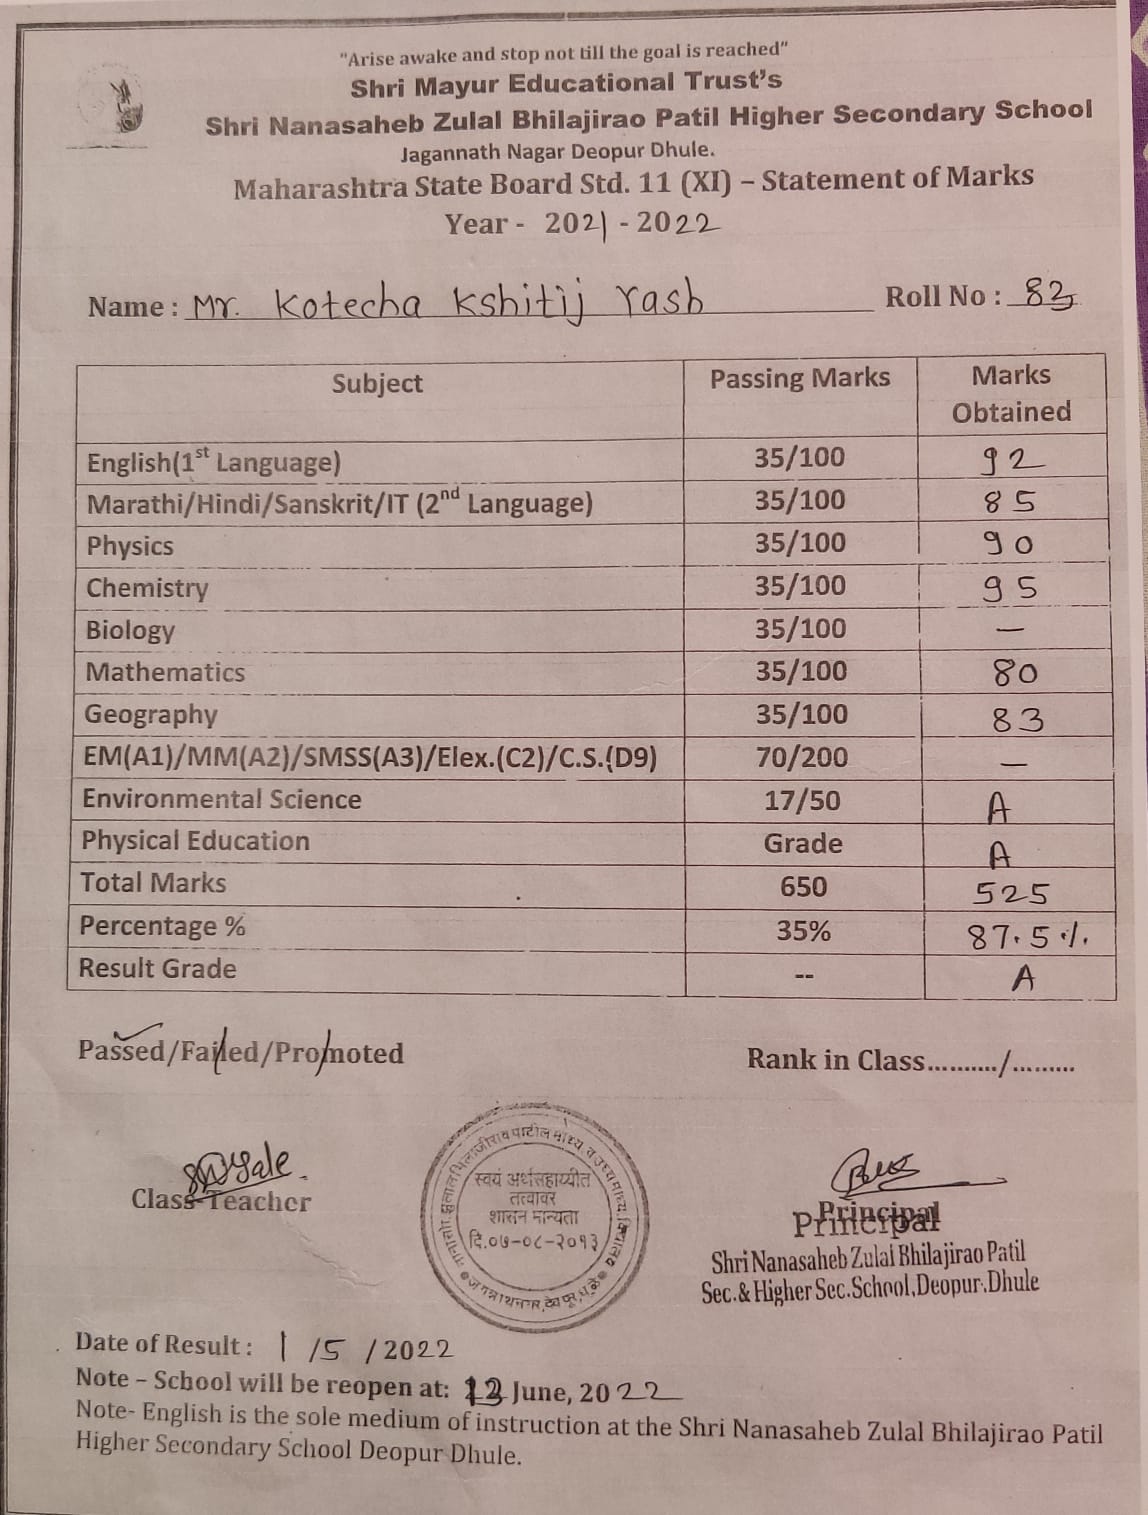 "Arise awake and stop not till the goal is reached"
Shri Mayur Educational Trust's
Shri Nanasaheb Zulal Bhilajirao Patil Higher Secondary School
Jagannath Nagar Deopur Dhule.
Maharashtra State Board Std. 11 (XI) – Statement of Marks
Year - 2021 - 2022
Name : Mr. Kotecha Kshitij Yash Roll No : 83
Subject Passing Marks Marks Obtained
English(1st Language) 35/100 92
Marathi/Hindi/Sanskrit/IT (2nd Language) 35/100 85
Physics 35/100 90
Chemistry 35/100 95
Biology 35/100 —
Mathematics 35/100 80
Geography 35/100 83
EM(A1)/MM(A2)/SMSS(A3)/Elex.(C2)/C.S.(D9) 70/200 —
Environmental Science 17/50 A
Physical Education Grade A
Total Marks 650 525
Percentage % 35% 87.5 %
Result Grade -- A
Passed/Failed/Promoted Rank in Class........../.........
स्वयं अर्थसहाय्यीत
तत्वावर
शासन मान्यता
दि.०७-०८-२०१३
जगन्नाथनगर, देवपूर, धुळे
Class Teacher
Principal
Principal
Shri Nanasaheb Zulal Bhilajirao Patil
Sec.& Higher Sec.School,Deopur.Dhule
Date of Result : 1 /5 / 2022
Note – School will be reopen at: 13 June, 2022
Note- English is the sole medium of instruction at the Shri Nanasaheb Zulal Bhilajirao Patil
Higher Secondary School Deopur Dhule.